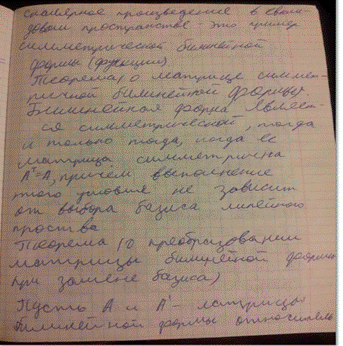 скалярное произведение в евкли-
довом пространстве - это пример
симметрической билинейной
формы (функции).
Теорема (о матрице симмет-
ричной билинейной формы).
Билинейная форма являет-
ся симметрической, тогда
и только тогда, когда ее
матрица симметрична
A^T=A, причем выполнение
этого условия не зависит
от выбора базиса линейного
проства
Теорема (о преобразовании
матрицы билинейной формы
при замене базиса)
Пусть A и A' - матрицы
билинейной формы относитель